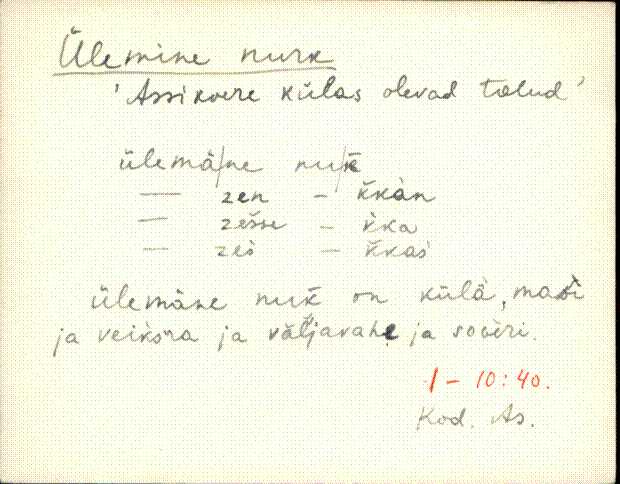 Ülemine nurk
'Assikvere külas olevad talud'
ülemä/ne nu/k̆
— zen – k̆kàn
— zešse – k̆ka
— zès – k̆kas
ülemäne nuk̆ on külä,
ja ja väl̆javahe ja
1 – 10:40.
Kod. As.